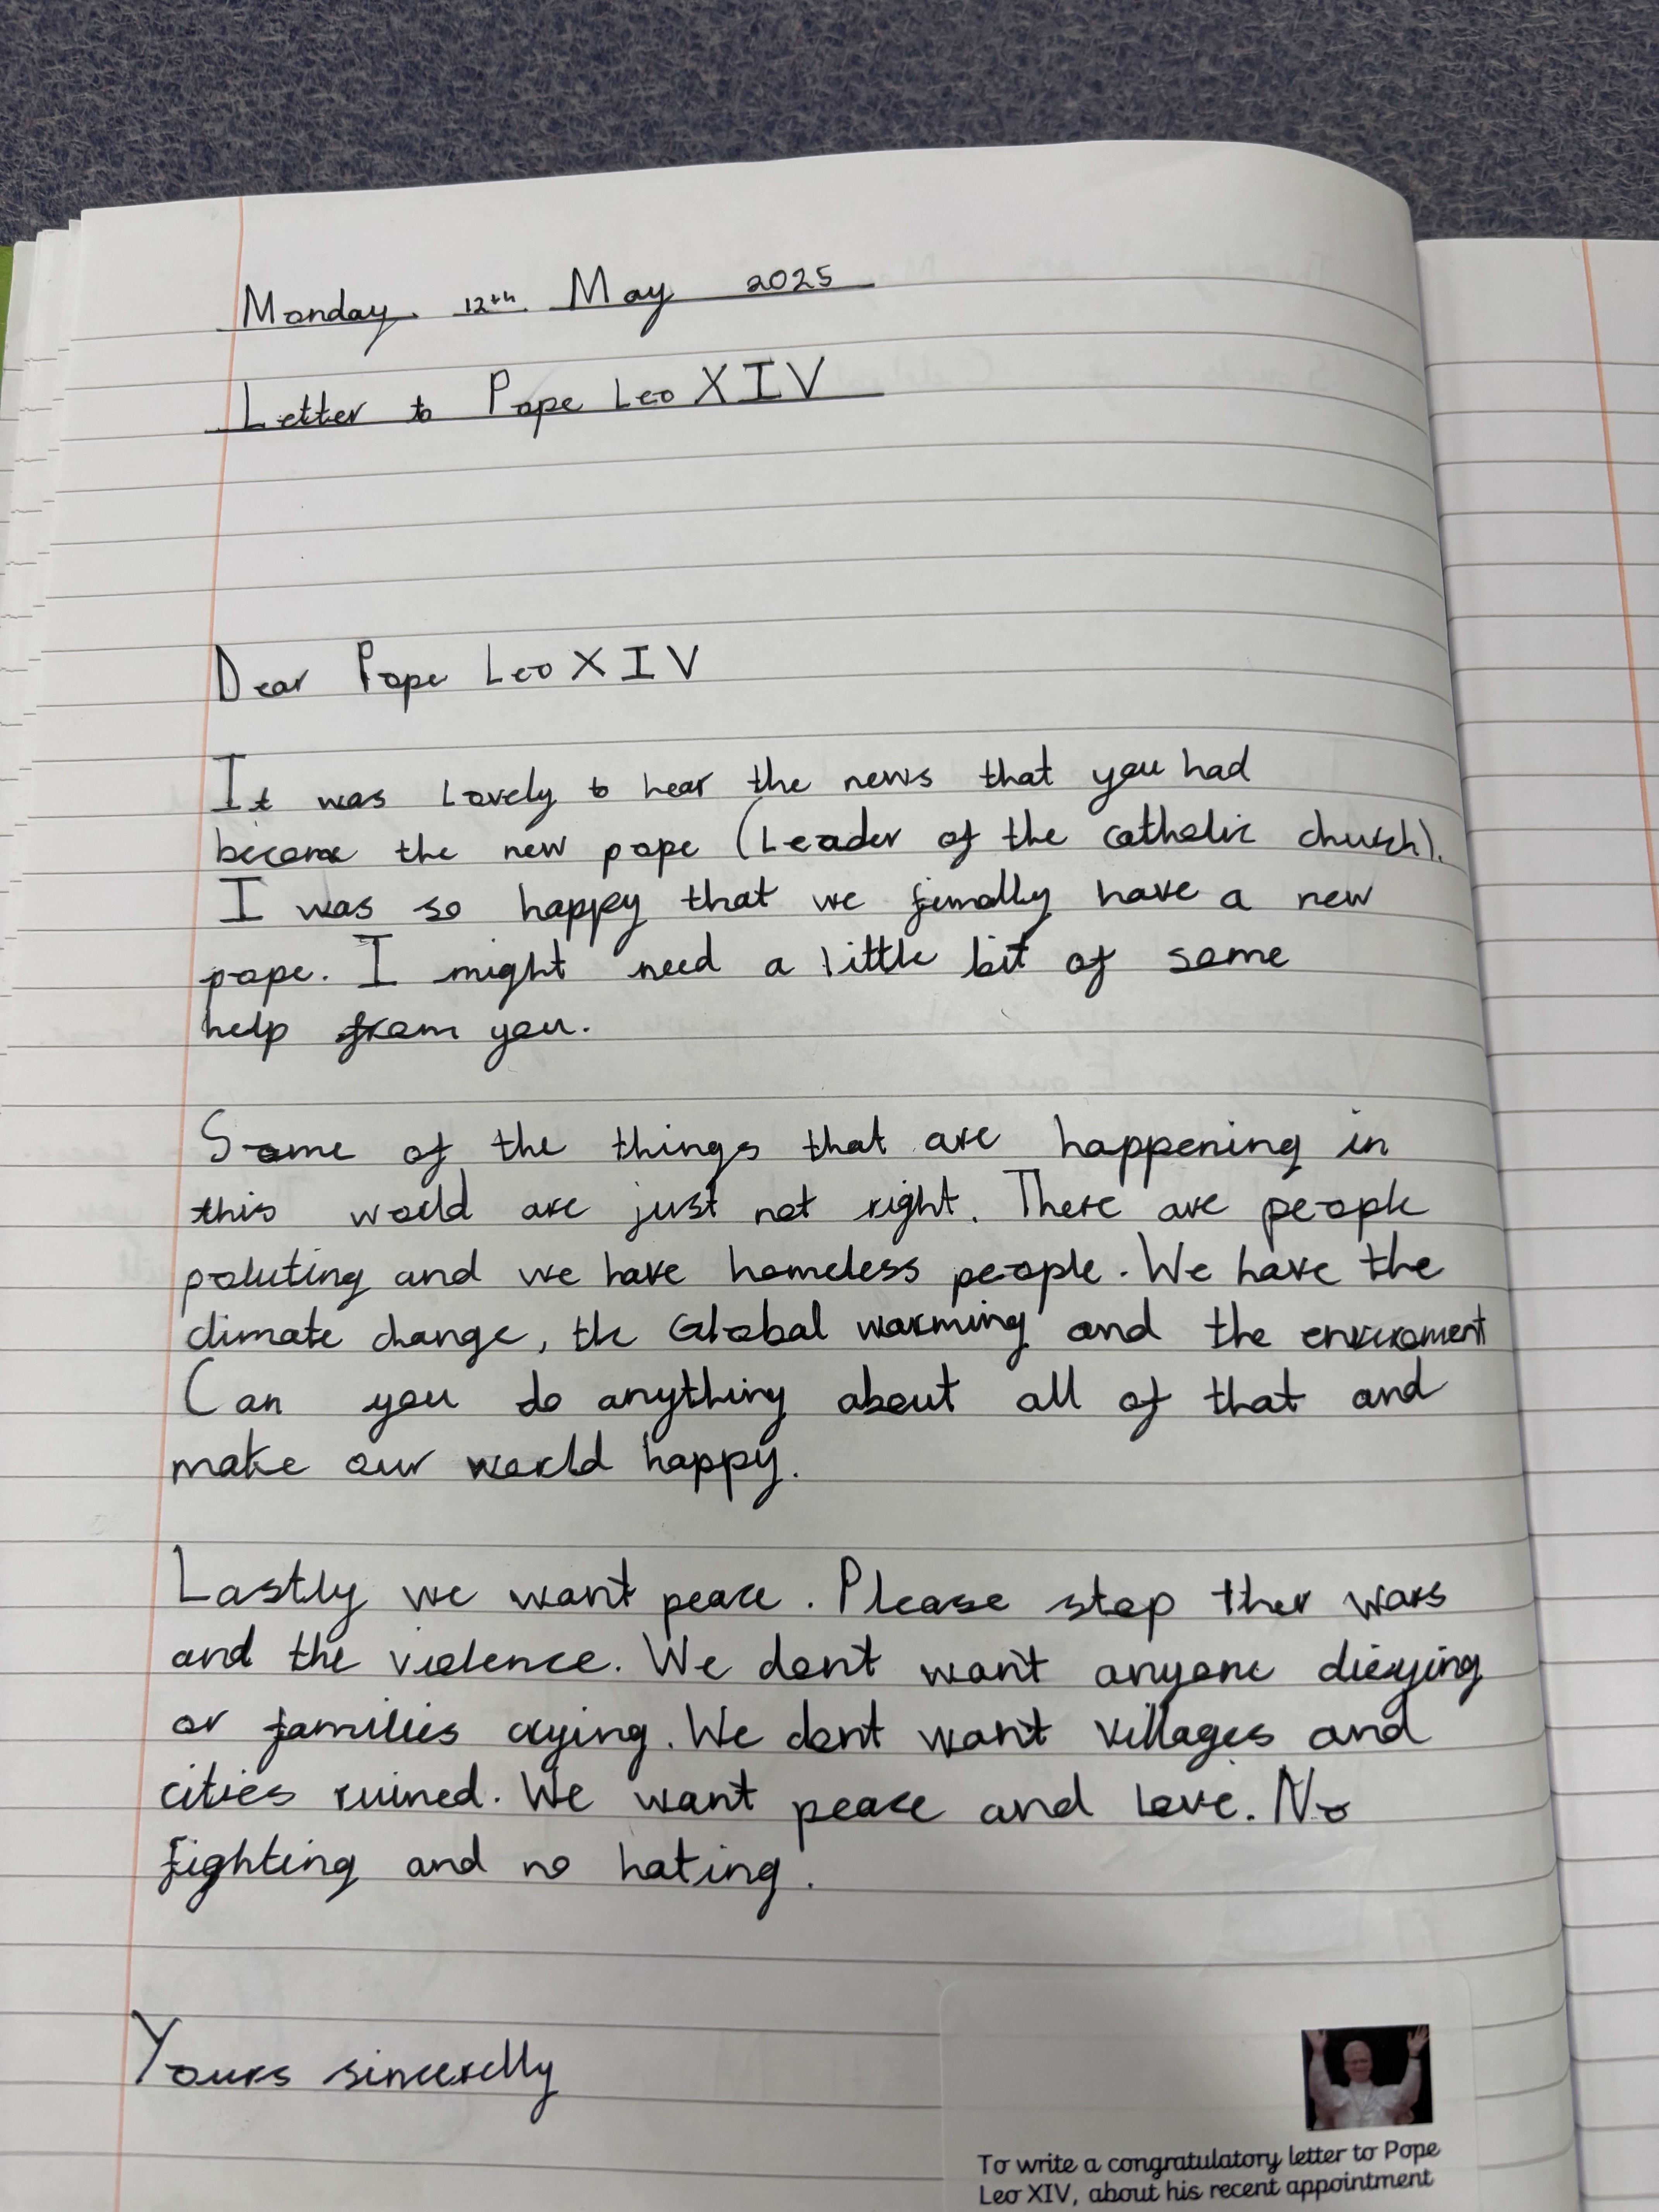 Monday 12th May 2025
Letter to Pope Leo XIV
Dear Pope Leo XIV
It was Lovely to hear the news that you had
become the new pope (Leader of the catholic church).
I was so happy that we finally have a new
pope. I might need a little bit of some
help from you.
Some of the things that are happening in
this world are just not right. There are people
poluting and we have homeless people. We have the
climate change, the Global warming and the enviroment
Can you do anything about all of that and
make our world happy.
Lastly we want peace. Please stop ther wars
and the violence. We dont want anyone dieying
or families crying. We dont want villages and
cities ruined. We want peace and Love. No
fighting and no hating.
Yours sincerelly
To write a congratulatory letter to Pope
Leo XIV, about his recent appointment